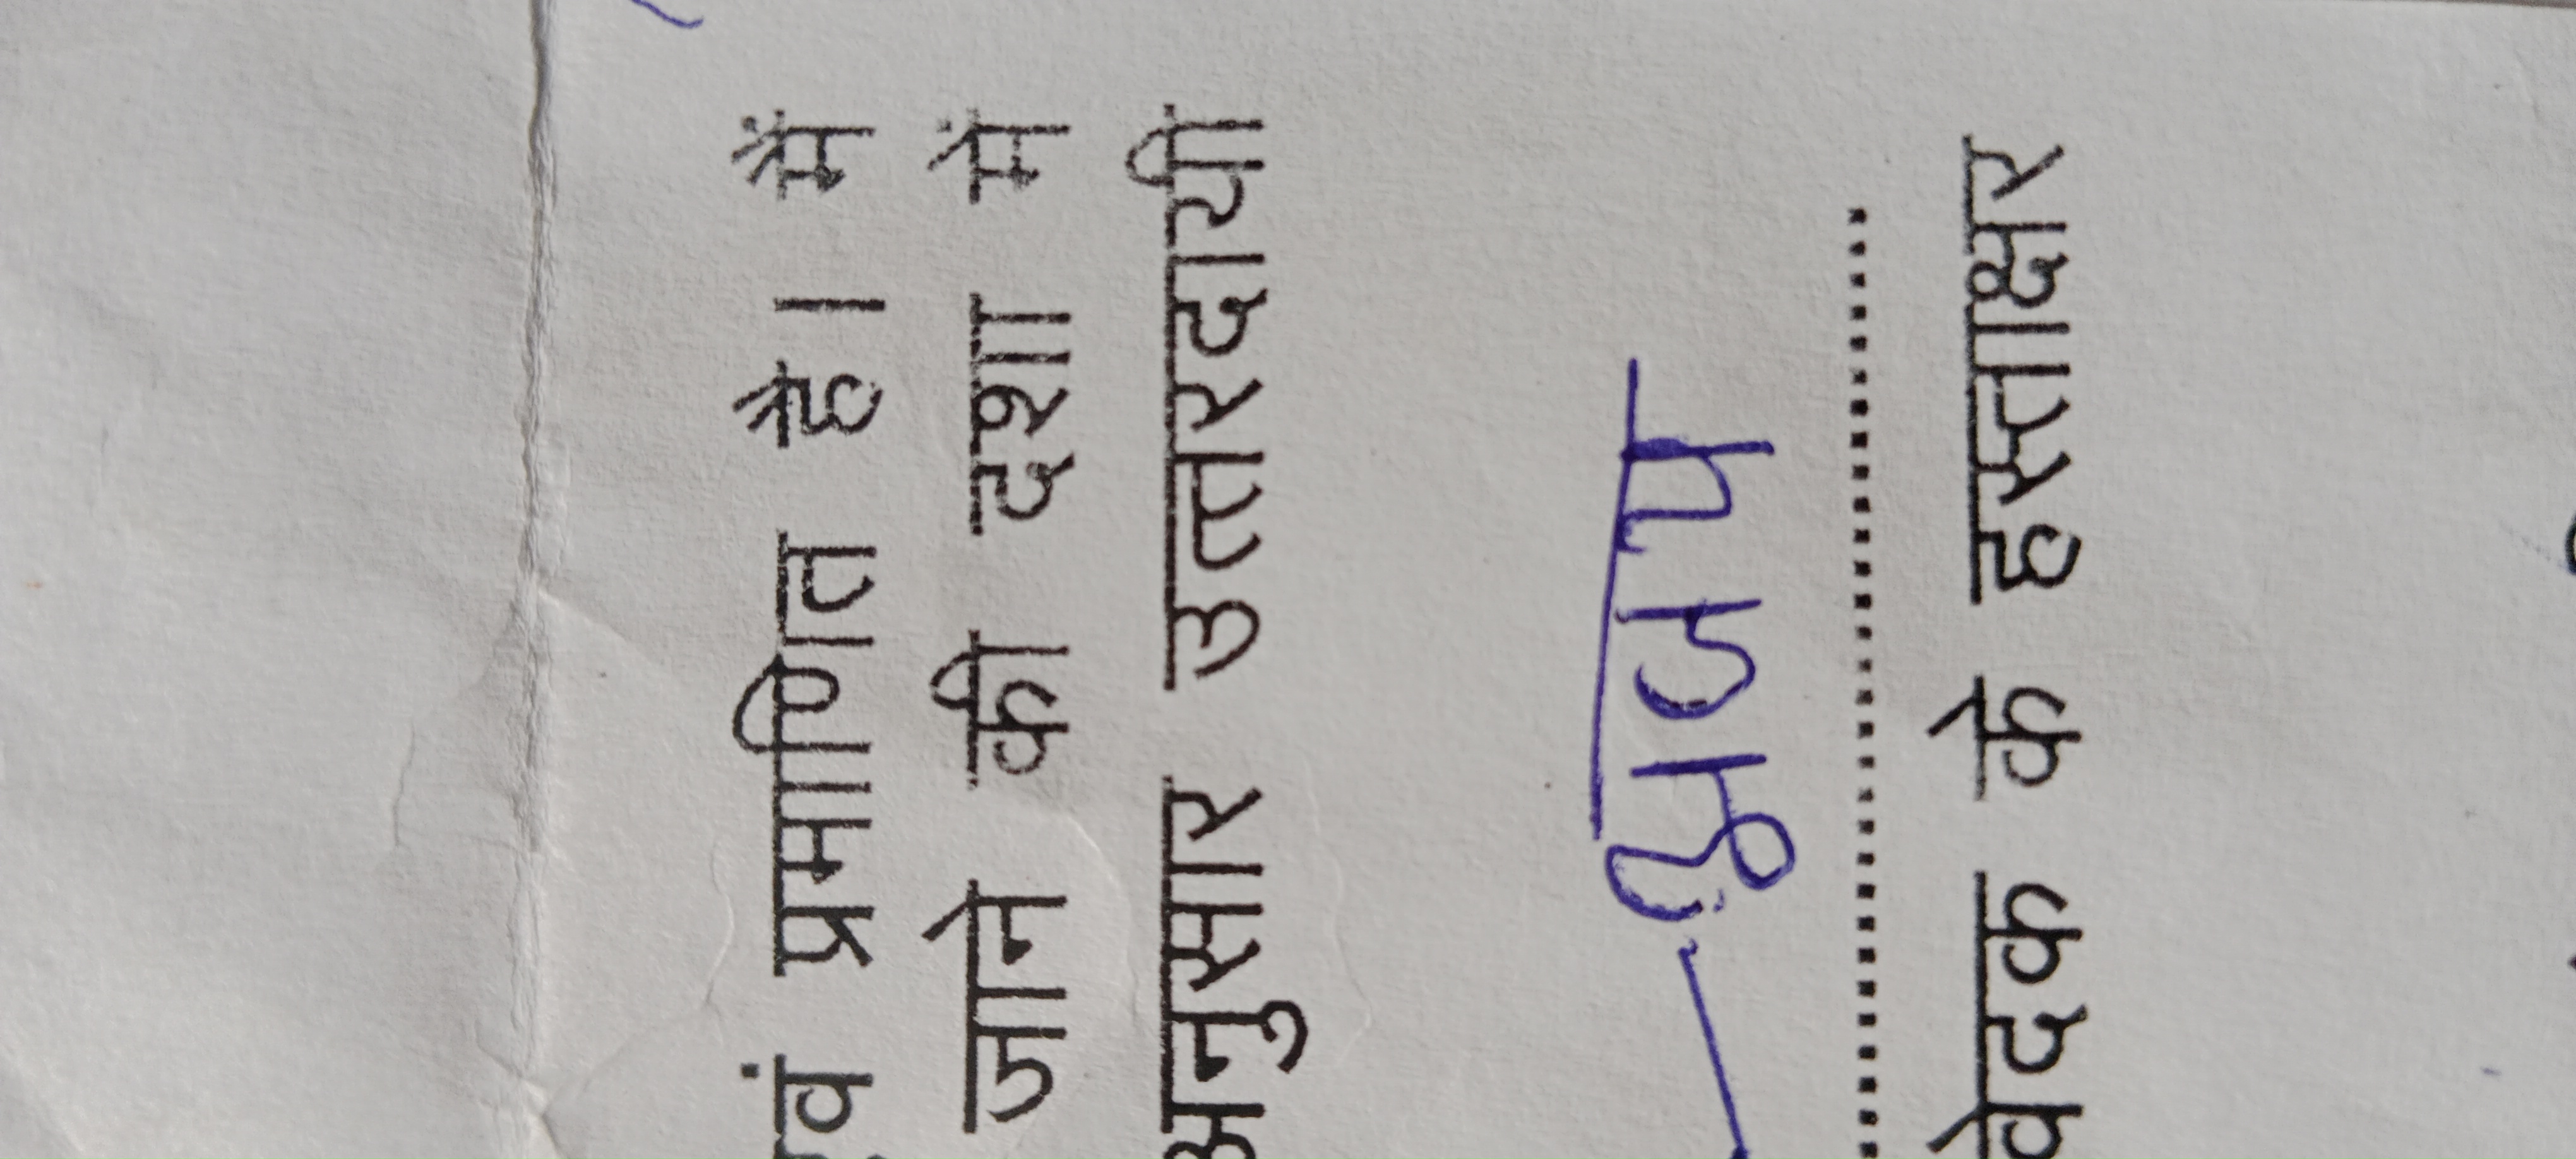 एवं प्रमाणित है। मैं
जाने की दशा में
अनुसार उत्तरदायी
भुवाप
वेदक के हस्ताक्षर